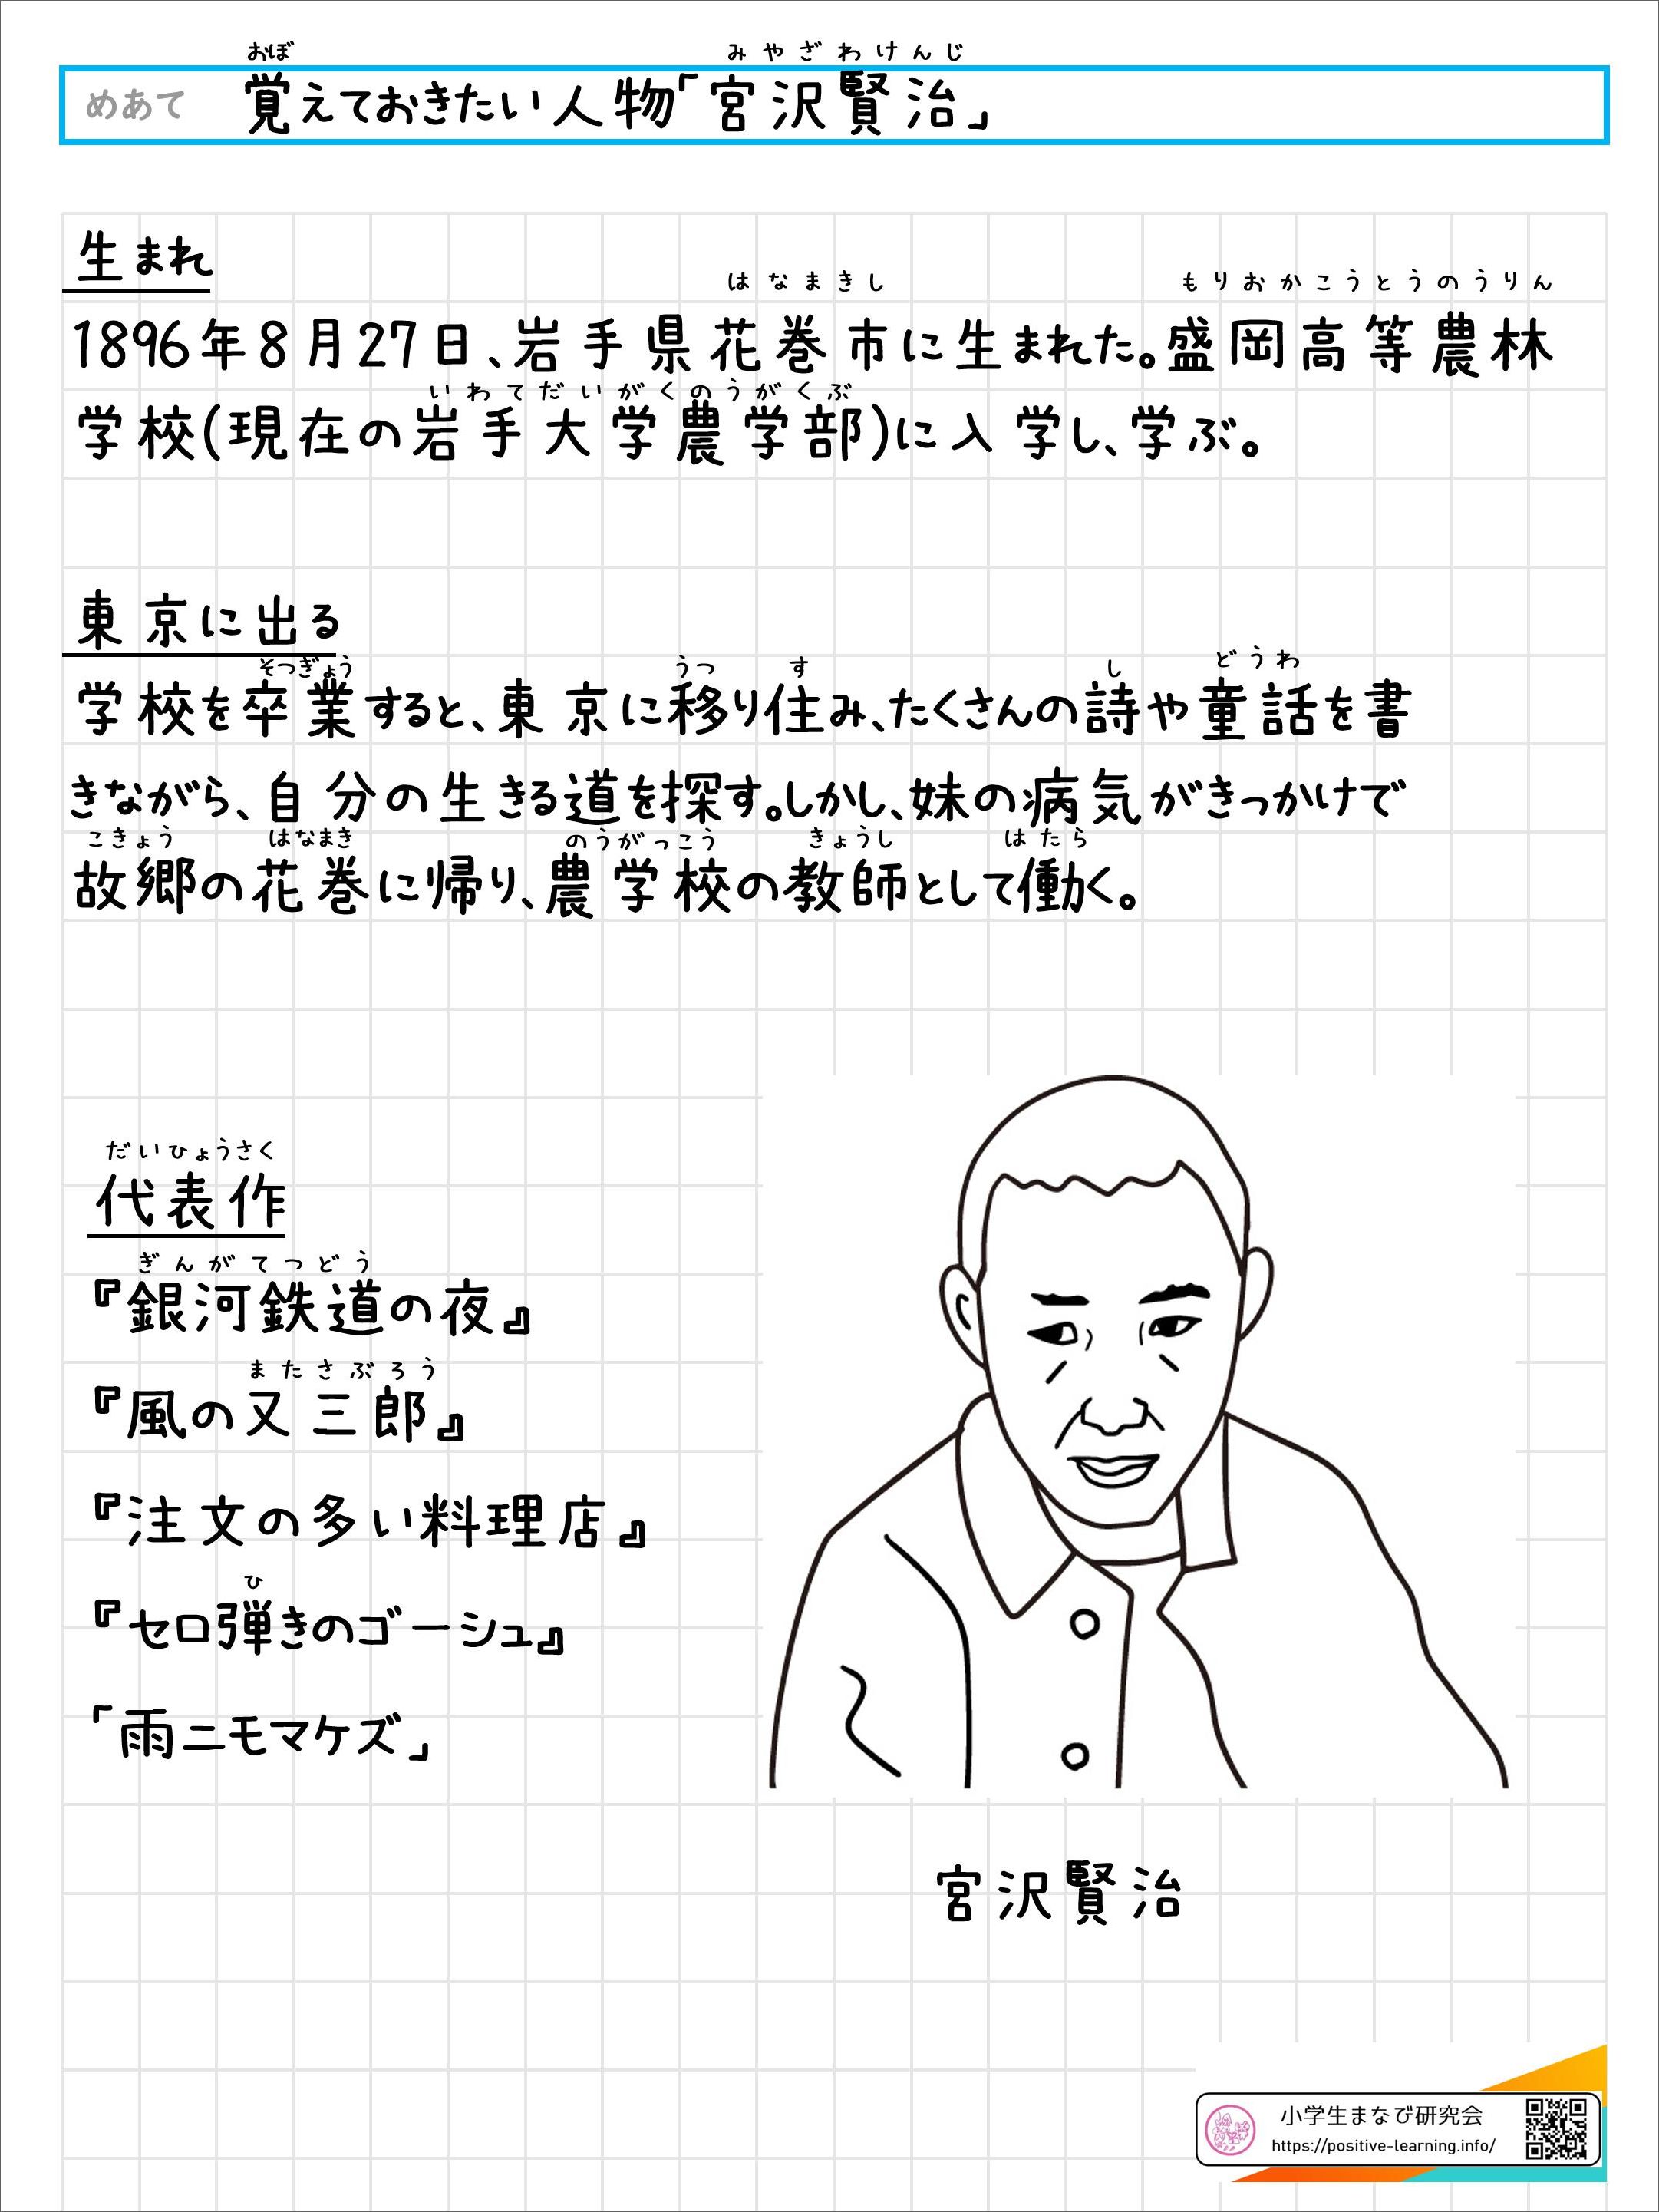 おぼ みやざわけんじ
めあて 覚えておきたい人物「宮沢賢治」
生まれ
はなまきし もりおかこうとうのうりん
1896年8月27日、岩手県花巻市に生まれた。盛岡高等農林
いわてだいがくのうがくぶ
学校(現在の岩手大学農学部)に入学し、学ぶ。
東京に出る
そつぎょう うつ す し どうわ
学校を卒業すると、東京に移り住み、たくさんの詩や童話を書
きながら、自分の生きる道を探す。しかし、妹の病気がきっかけで
こきょう はなまき のうがっこう きょうし はたら
故郷の花巻に帰り、農学校の教師として働く。
だいひょうさく
代表作
ぎんがてつどう
『銀河鉄道の夜』
またさぶろう
『風の又三郎』
『注文の多い料理店』
ひ
『セロ弾きのゴーシュ』
「雨ニモマケズ」
宮沢賢治
小学生まなび研究会
https://positive-learning.info/